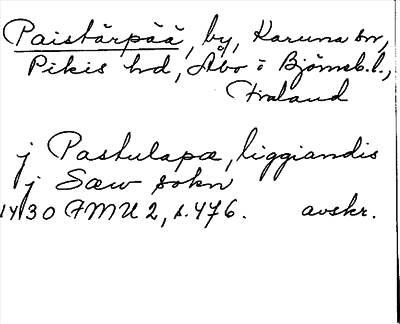 Paistärpää, by, Karuna sn,
Pikis hd, Åbo o Björneb. l.,
Finland
j Pastulapæ, liggiandis
j Sæw sokn
1430 FMU 2, s. 476. avskr.